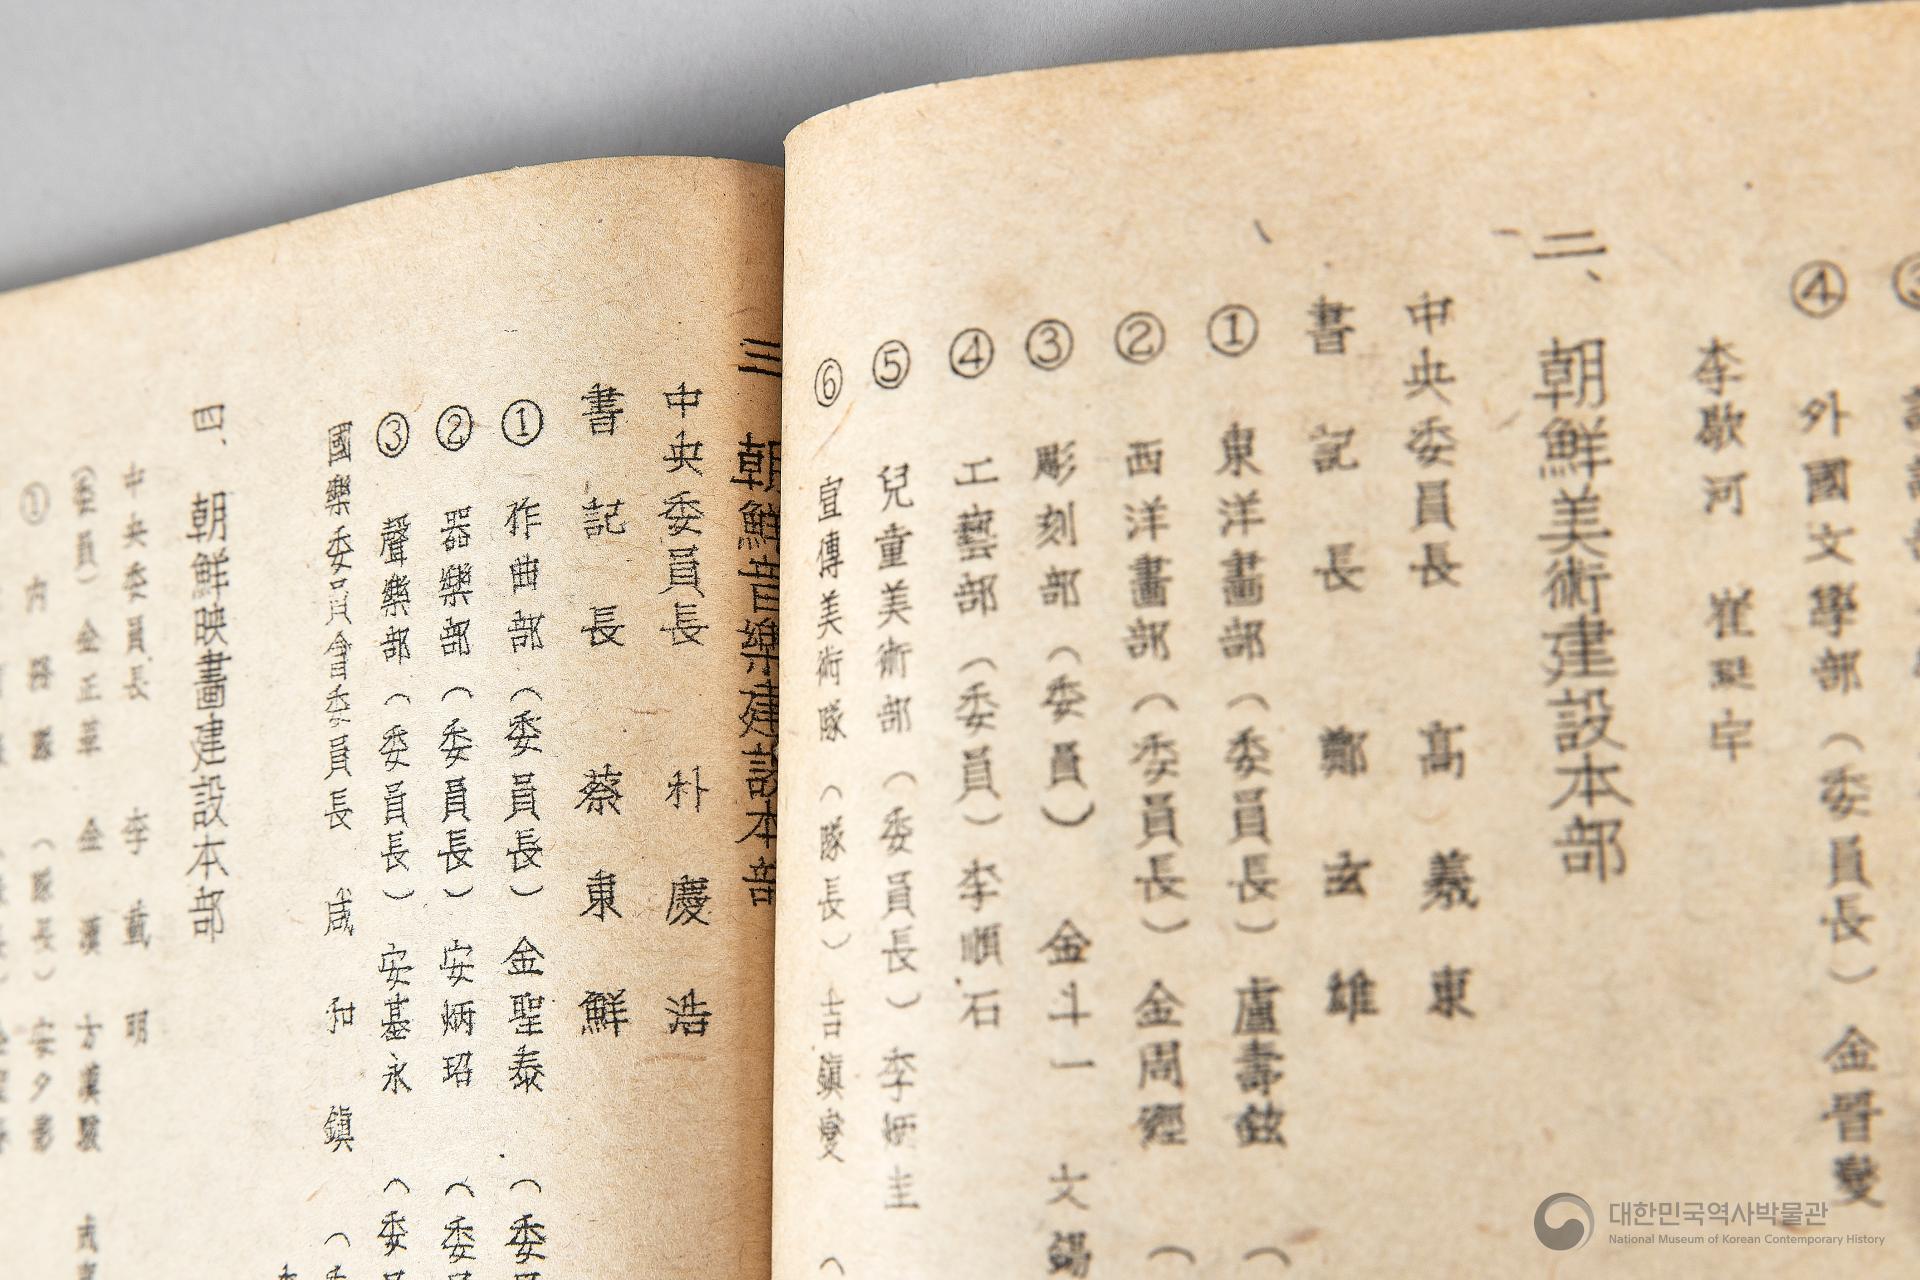 ④ 外國文學部（委員長）金晋燮
李歇河
二、朝鮮美術建設本部
中央委員長 高羲東
書記長 鄭玄雄
① 東洋畵部（委員長）盧壽鉉（
② 西洋畵部（委員長）金周經（
③ 彫刻部（委員）金斗一 文錫
④ 工藝部（委員）李順石
⑤ 兒童美術部（委員長）李炳圭
⑥ 宣傳美術隊（隊長）吉鎭燮（
三 朝鮮音樂建設本部
中央委員長 朴慶浩
書記長 蔡東鮮
① 作曲部（委員長）金聖泰（委員
② 器樂部（委員長）安炳玿（委員
③ 聲樂部（委員長）安基永（委員
國樂委員會委員長 咸和鎭（
四、朝鮮映畵建設本部
中央委員長 李載明
（委員）金正革 金漢 方漢駿
① 內務隊（隊長）安夕影
대한민국역사박물관
National Museum of Korean Contemporary History